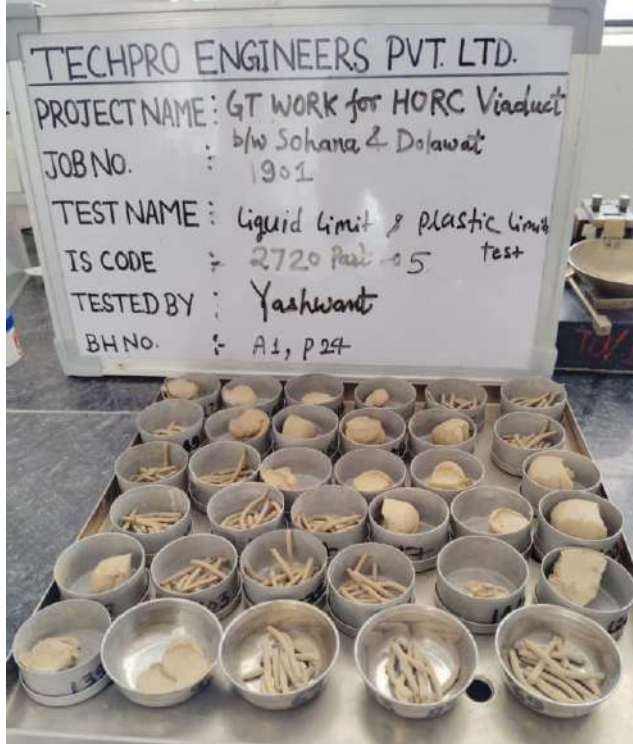 TECHPRO ENGINEERS PVT. LTD.
PROJECT NAME : GT WORK for HORC Viaduct
b/w Sohana & Dolawat
JOB NO. : 1901
TEST NAME : Liquid Limit & plastic limit
test
IS CODE :- 2720 Part - 05
TESTED BY : Yashwant
BH NO. :- A1, P24